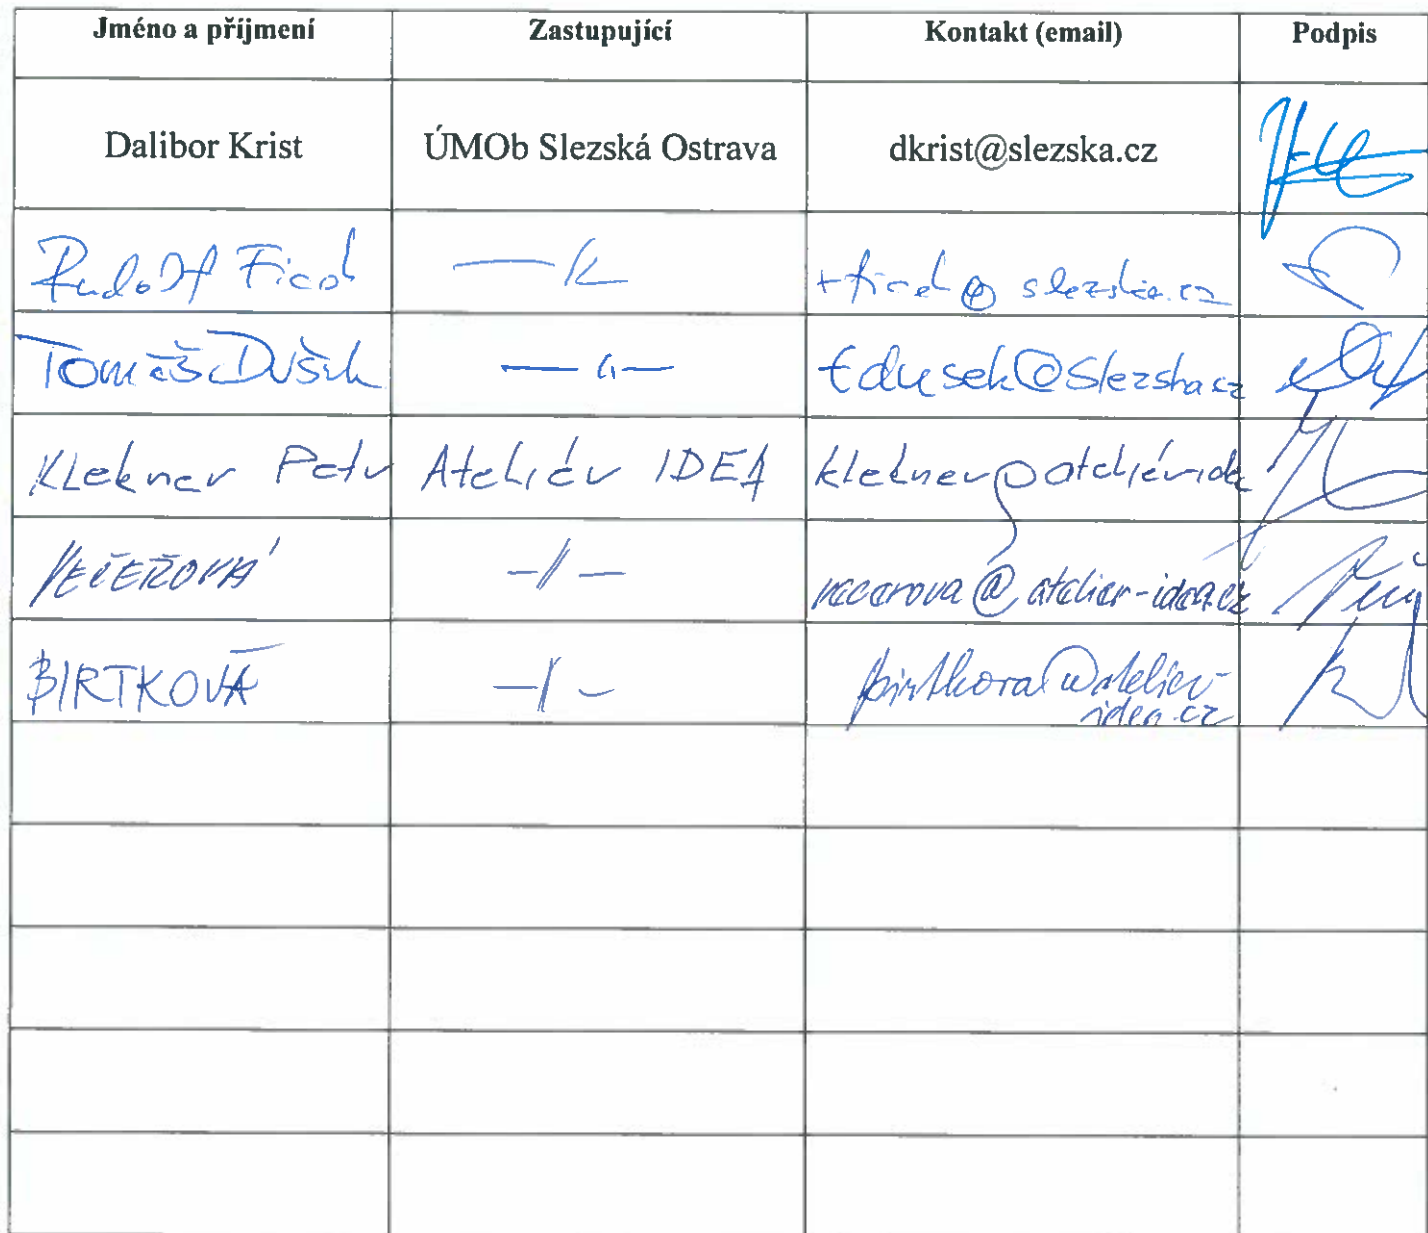 Jméno a příjmení Zastupující Kontakt (email) Podpis
Dalibor Krist ÚMOb Slezská Ostrava dkrist@slezska.cz
Rudolf Ficek —"— rficek@slezska.cz
Tomáš Dušek —"— tdusek@slezska.cz
Klekner Petr Ateliér IDEA klekner@atelieridea
VEČEŘOVÁ —"— vecerova@atelier-idea.cz
BIRTKOVÁ —"— birtkova@atelier-
idea.cz